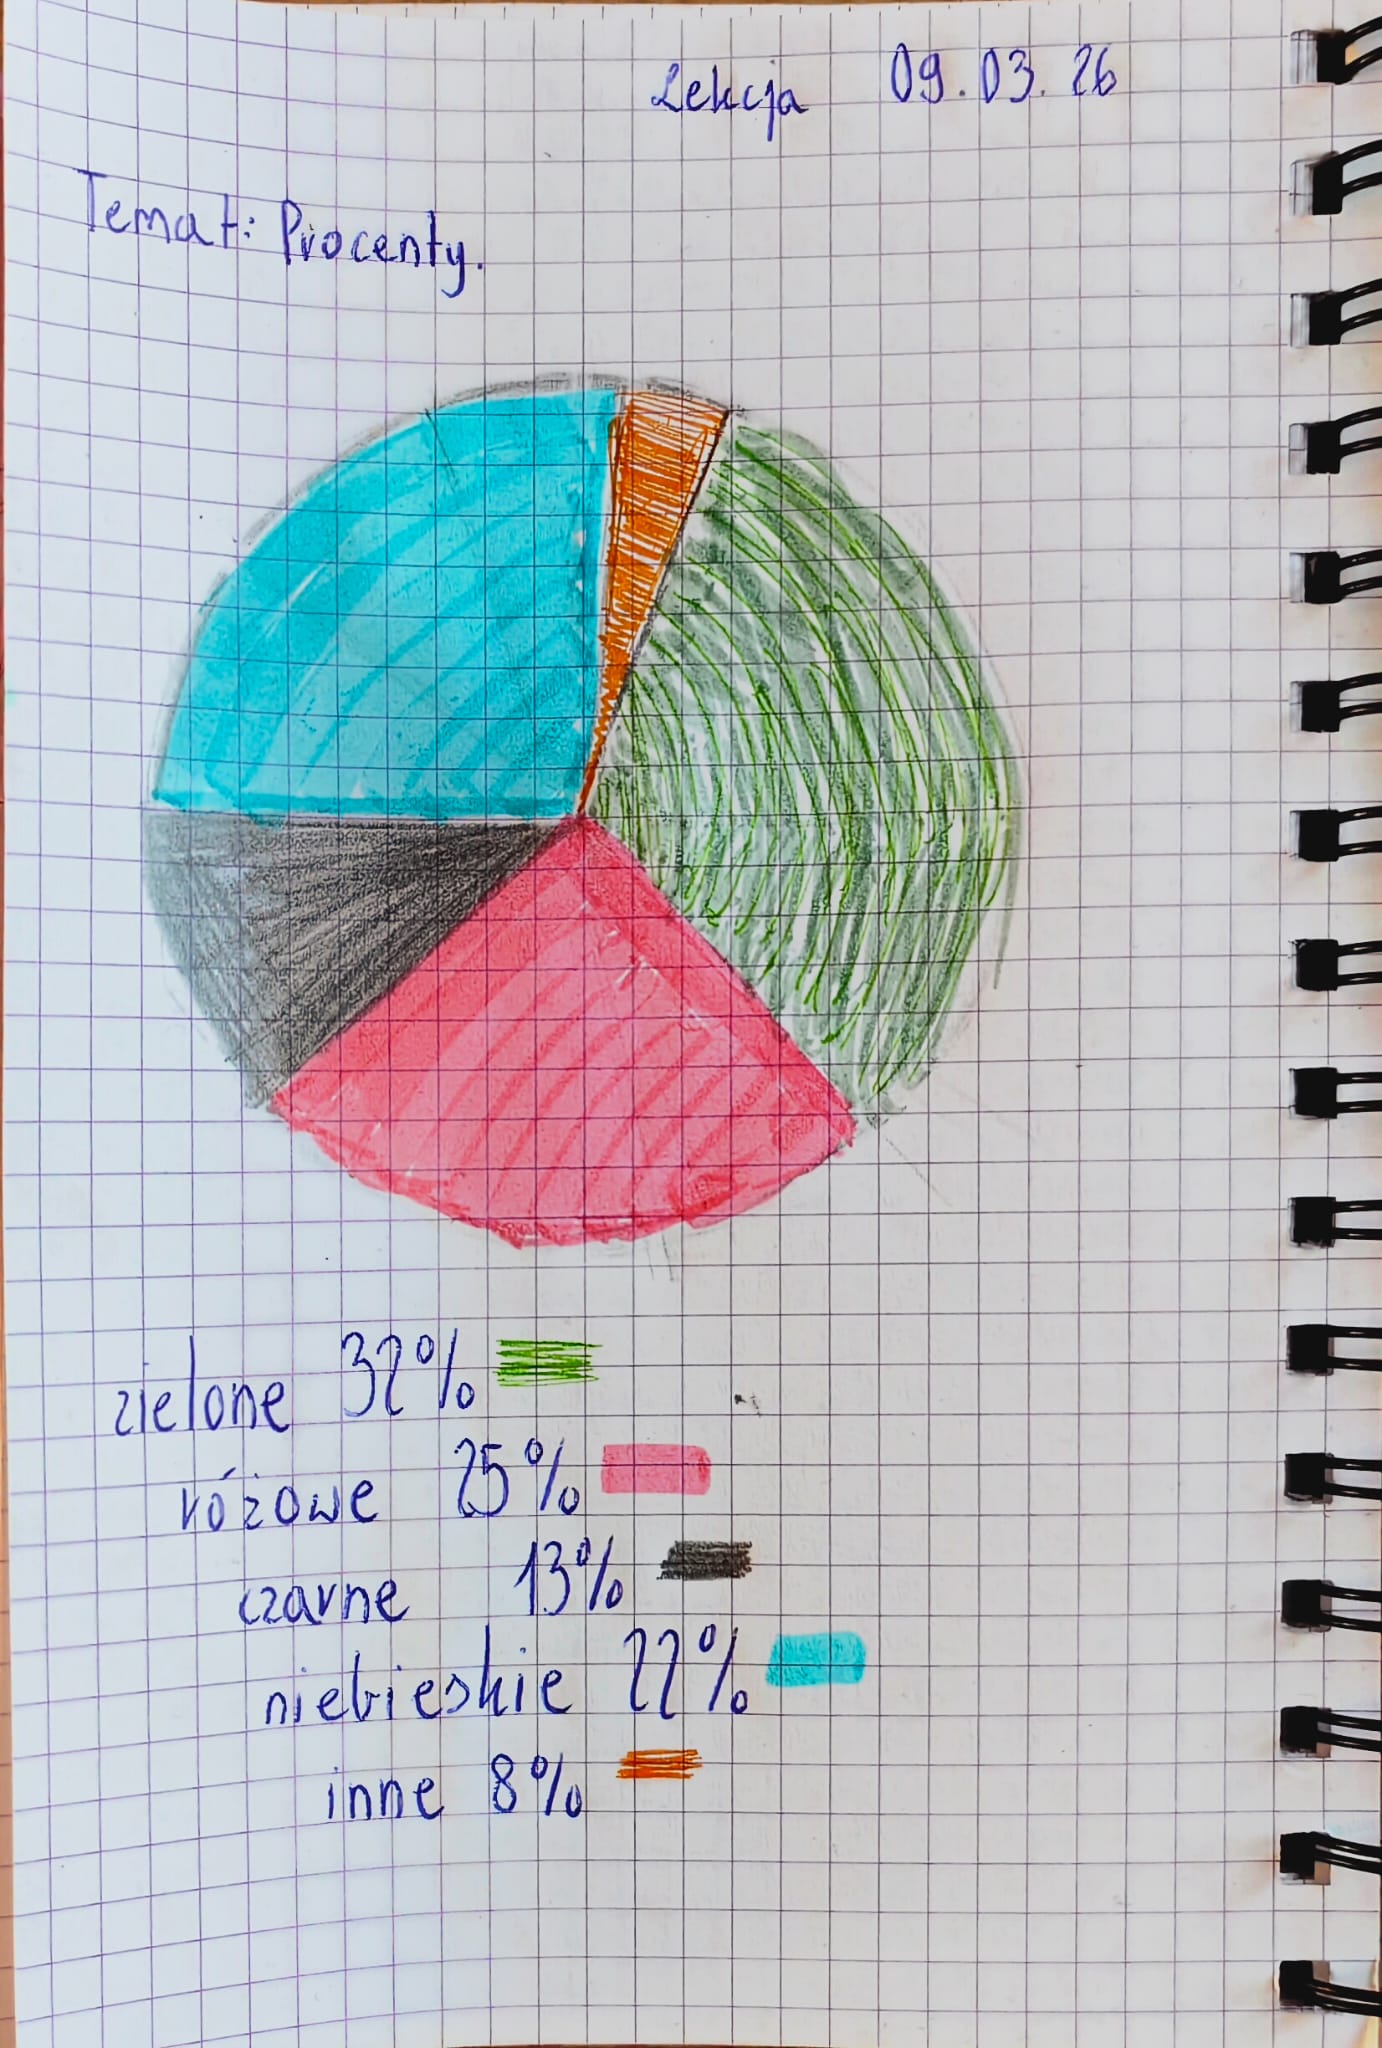 Lekcja 09.03.26
Temat: Procenty.
zielone 32%
różowe 25%
czarne 13%
niebieskie 22%
inne 8%